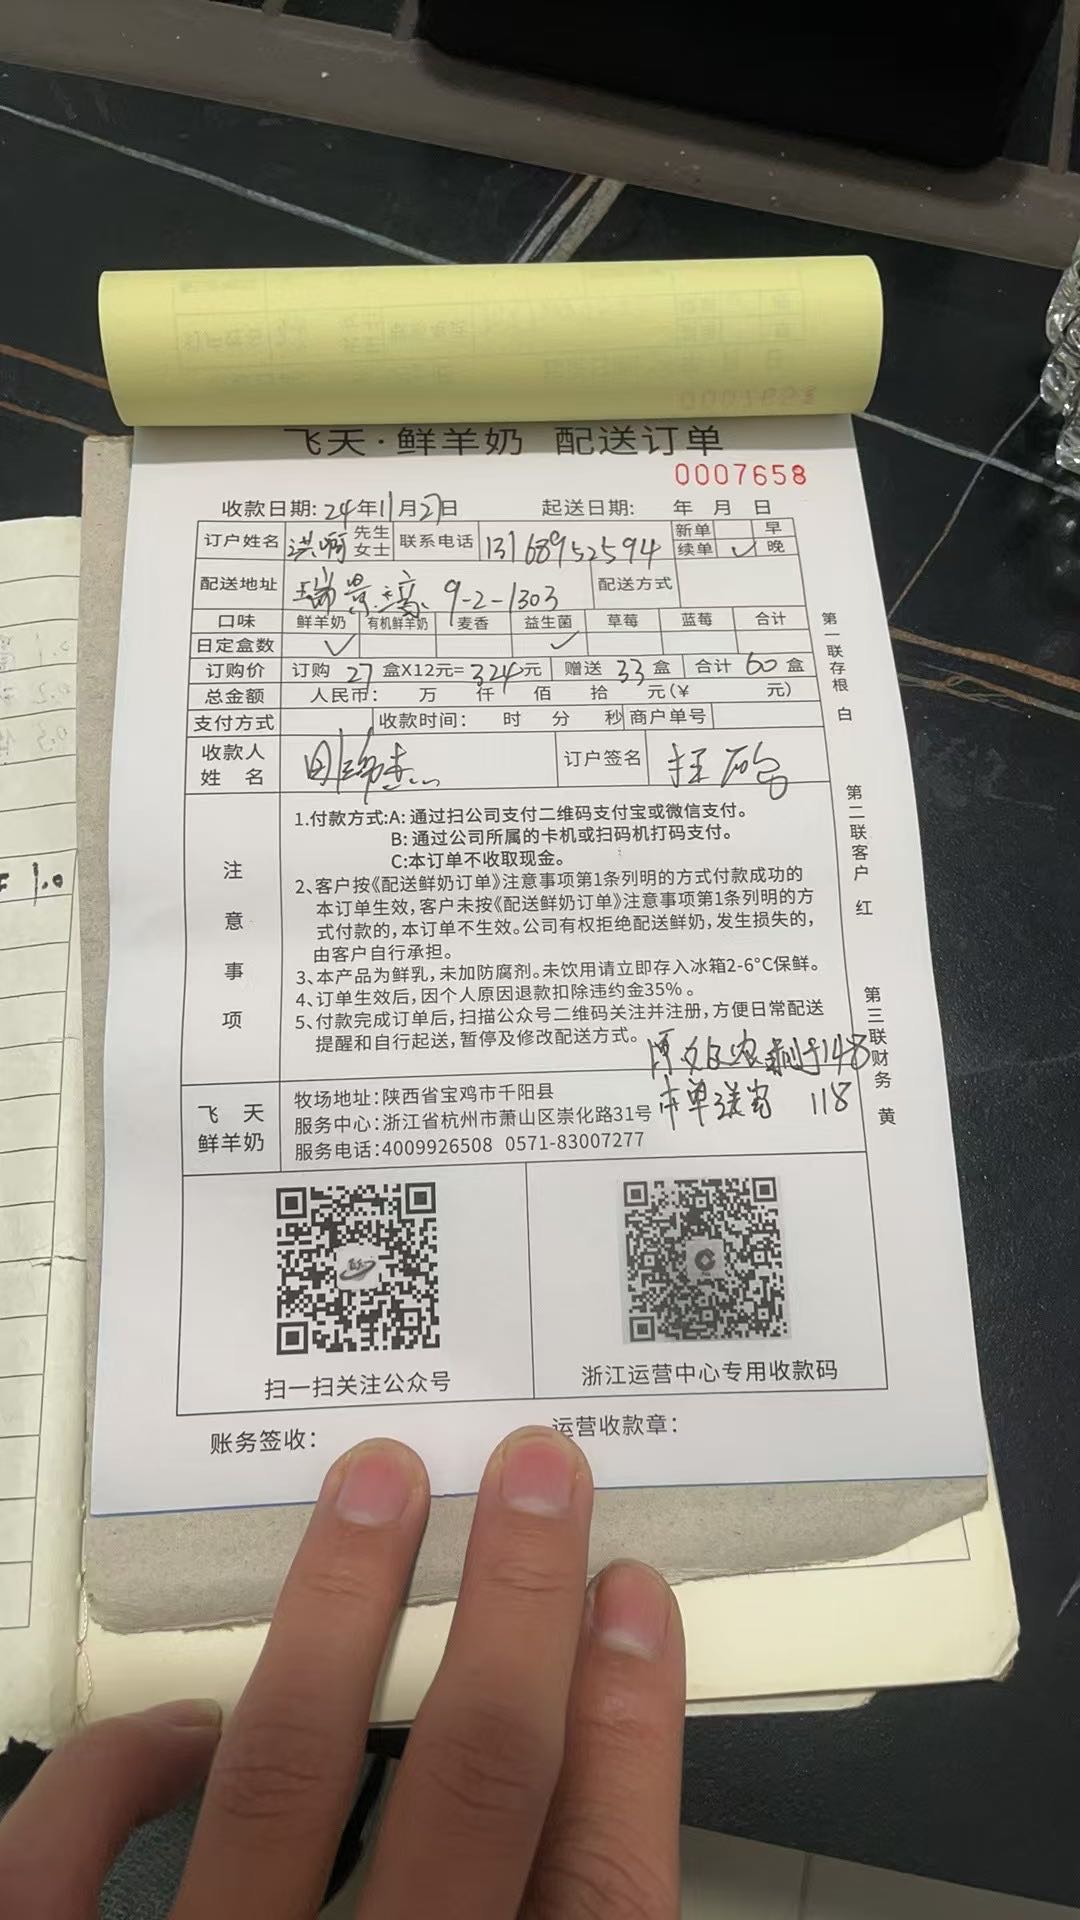 飞天·鲜羊奶 配送订单
0007658
收款日期: 24年11月27日 起送日期: 年 月 日
订户姓名 洪 先生 女士 联系电话 13168952594 新单 早
续单 ✓ 晚
配送地址 瑞景 9-2-1303 配送方式
口味 鲜羊奶 有机鲜羊奶 麦香 益生菌 草莓 蓝莓 合计
日定盒数 ✓ ✓
订购价 订购 27 盒X12元= 324元 赠送 33 盒 合计 60 盒
总金额 人民币: 万 仟 佰 拾 元(¥ 元)
支付方式 收款时间: 时 分 秒 商户单号
收款人姓名 订户签名
注意事项
1.付款方式:A:通过扫公司支付二维码支付宝或微信支付。
B:通过公司所属的卡机或扫码机打码支付。
C:本订单不收取现金。
2、客户按《配送鲜奶订单》注意事项第1条列明的方式付款成功的
本订单生效,客户未按《配送鲜奶订单》注意事项第1条列明的方
式付款的,本订单不生效。公司有权拒绝配送鲜奶,发生损失的,
由客户自行承担。
3、本产品为鲜乳,未加防腐剂。未饮用请立即存入冰箱2-6°C保鲜。
4、订单生效后,因个人原因退款扣除违约金35%。
5、付款完成订单后,扫描公众号二维码关注并注册,方便日常配送
提醒和自行起送,暂停及修改配送方式。
148
本单送 118
飞天鲜羊奶
牧场地址:陕西省宝鸡市千阳县
服务中心:浙江省杭州市萧山区崇化路31号
服务电话:4009926508 0571-83007277
扫一扫关注公众号 浙江运营中心专用收款码
账务签收: 运营收款章:
第一联存根 白
第二联客户 红
第三联财务 黄
1.0